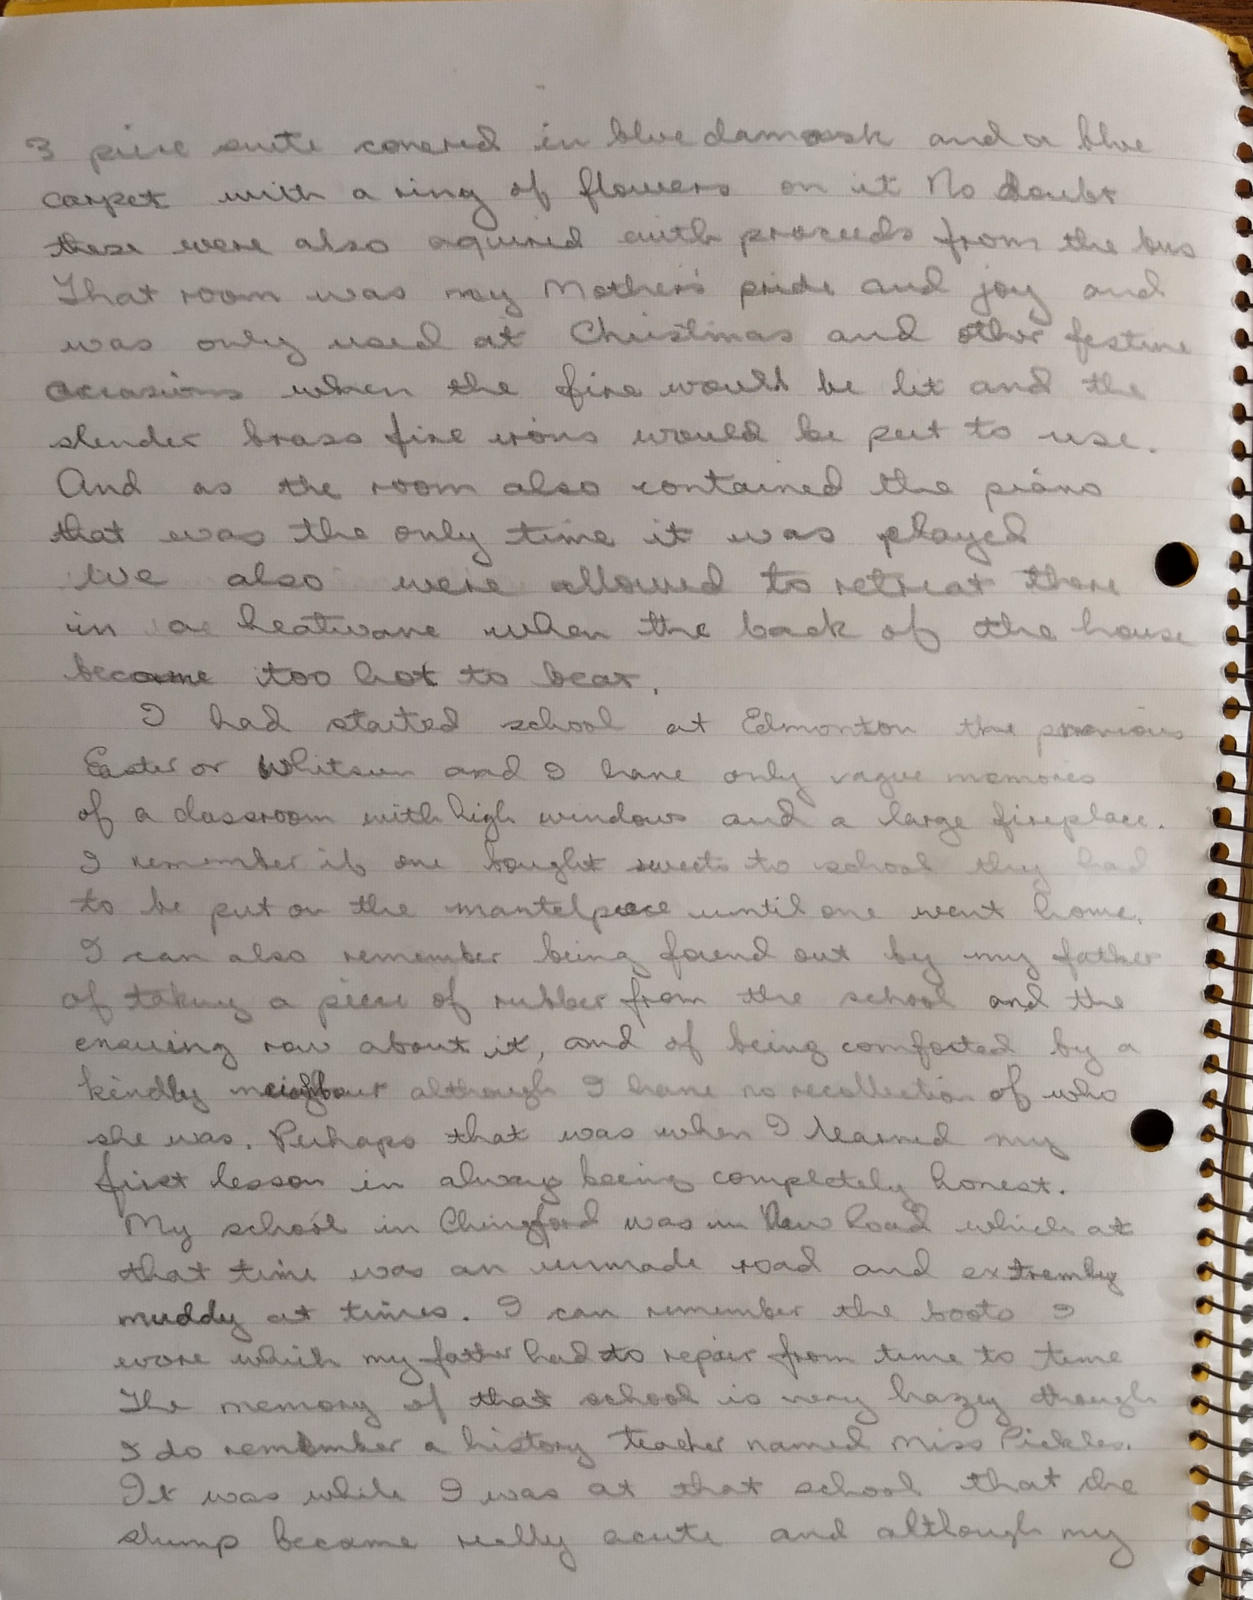 3 piece suite covered in blue damask and a blue
carpet with a ring of flowers on it No doubt
these were also aquired with proceeds from the bus
That room was my Mother's pride and joy and
was only used at Christmas and other festive
occasions when the fire would be lit and the
slender brass fire irons would be put to use.
And as the room also contained the piano
that was the only time it was played
We also were allowed to retreat there
in a heatwave when the back of the house
became too hot to bear.
I had started school at Edmonton the previous
Easter or Whitsun and I have only vague memories
of a classroom with high windows and a large fireplace.
I remember if one bought sweets to school they had
to be put on the mantelpeace until one went home.
I can also remember being found out by my father
of taking a piece of rubber from the school and the
ensuing row about it, and of being comforted by a
kindly neighbour although I have no recollection of who
she was. Perhaps that was when I learned my
first lesson in always being completely honest.
My school in Chingford was in New Road which at
that time was an unmade road and extremley
muddy at times. I can remember the boots I
wore which my father had to repair from time to time
The memory of that school is very hazey though
I do remember a history teacher named Miss Pickles.
It was while I was at that school that the
slump became really acute and although my